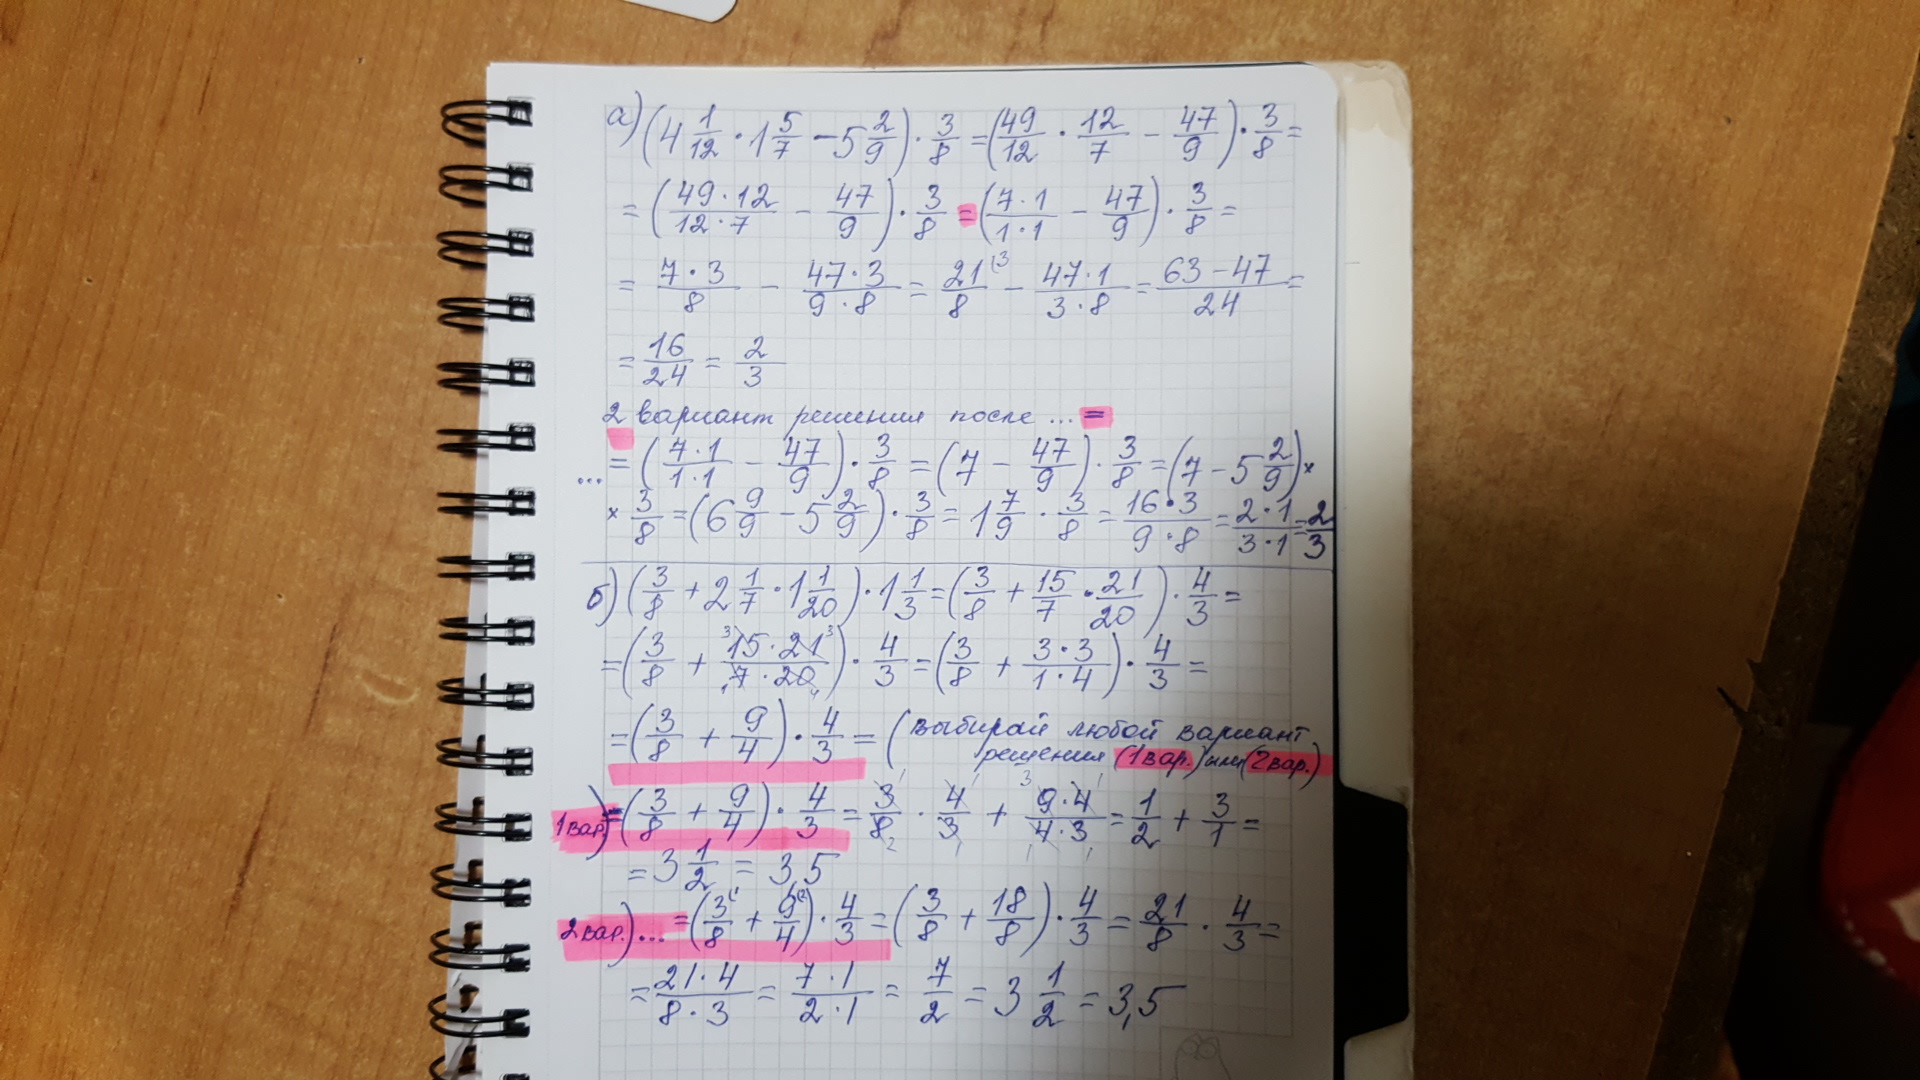 а) (4 1/12 · 1 5/7 − 5 2/9) · 3/8 = (49/12 · 12/7 − 47/9) · 3/8 =
= (49·12/12·7 − 47/9) · 3/8 = (7·1/1·1 − 47/9) · 3/8 =
= 7·3/8 − 47·3/9·8 = 21/8 (3 − 47·1/3·8 = 63−47/24 =
= 16/24 = 2/3
2 вариант решения после ... =
... = (7·1/1·1 − 47/9) · 3/8 = (7 − 47/9) · 3/8 = (7 − 5 2/9) ×
× 3/8 = (6 9/9 − 5 2/9) · 3/8 = 1 7/9 · 3/8 = 16·3/9·8 = 2·1/3·1 = 2/3
б) (3/8 + 2 1/7 · 1 1/20) · 1 1/3 = (3/8 + 15/7 · 21/20) · 4/3 =
= (3/8 + 3 15·21 3/1 7·20 4) · 4/3 = (3/8 + 3·3/1·4) · 4/3 =
= (3/8 + 9/4) · 4/3 = (выбирай любой вариант
решения (1 вар.) или (2 вар.)
1 вар.) = (3/8 + 9/4) · 4/3 = 3/8 · 4/3 + 9·4/4·3 = 1/2 + 3/1 =
= 3 1/2 = 3,5
2 вар.) ... = (3/8 + 9/4) · 4/3 = (3/8 + 18/8) · 4/3 = 21/8 · 4/3 =
= 21·4/8·3 = 7·1/2·1 = 7/2 = 3 1/2 = 3,5